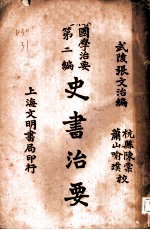 武陵張文治編
杭縣陳棠校
蕭山喻璞
國學治要
第二編
史書治要
上海文明書局印行